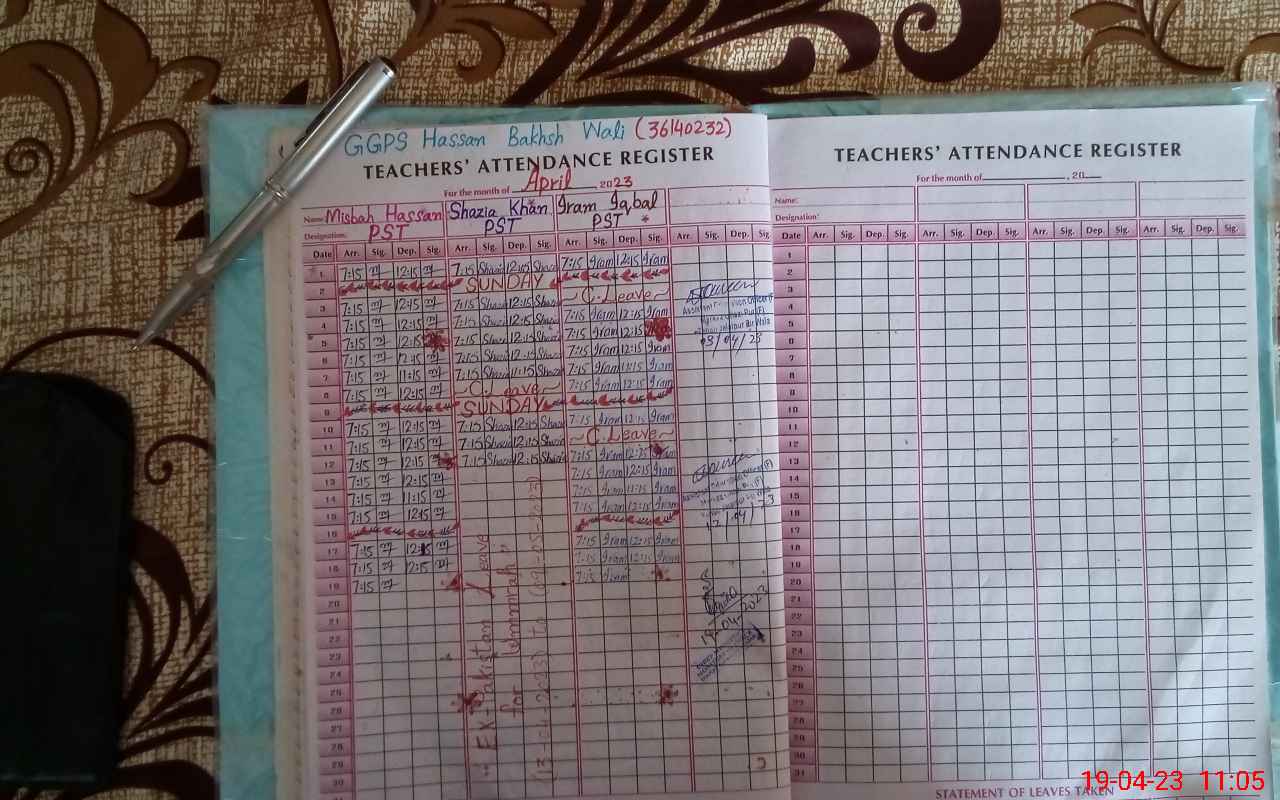 GGPS Hassan Bakhsh Wali (36140232)
TEACHERS' ATTENDANCE REGISTER
For the month of April, 2023
Name: Misbah Hassan Shazia Khan Iram Iqbal
Designation: PST PST PST
Date Arr. Sig. Dep. Sig. Arr. Sig. Dep. Sig. Arr. Sig. Dep. Sig. Arr. Sig. Dep. Sig.
1 7:15 12:15 7:15 Shazia 12:15 Shazia 7:15 Iram 12:15 Iram
2 SUNDAY
3 7:15 12:15 7:15 Shazia 12:15 Shazia ~C.Leave~
4 7:15 12:15 7:15 Shazia 12:15 Shazia 7:15 Iram 12:15 Iram
5 7:15 12:15 7:15 Shazia 12:15 Shazia 7:15 Iram 12:15
6 7:15 12:15 7:15 Shazia 12:15 Shazia 7:15 Iram 12:15 Iram
7 7:15 11:15 7:15 Shazia 11:15 Shazia 7:15 Iram 11:15 Iram
8 7:15 12:15 ~C.Leave~ 7:15 Iram 12:15 Iram
9 SUNDAY
10 7:15 12:15 7:15 Shazia 12:15 Shazia 7:15 Iram 12:15 Iram
11 7:15 12:15 7:15 Shazia 12:15 Shazia ~C.Leave~
12 7:15 12:15 7:15 Shazia 12:15 Shazia 7:15 Iram 12:15 Iram
13 7:15 12:15 7:15 Iram 12:15 Iram
14 7:15 11:15 7:15 Iram 11:15 Iram
15 7:15 12:15 7:15 Iram 12:15 Iram
16
17 7:15 12:15 7:15 Iram 12:15 Iram
18 7:15 12:15 7:15 Iram 12:15 Iram
19 7:15 7:15 Iram
20
21
22
23
24
25
26
27
28
29
30
"EX Pakistan Leave
for Ummrah"
(13-04-2023) to (09-05-2023)
03/04/23
12/04/23
19-04-2023
TEACHERS' ATTENDANCE REGISTER
For the month of , 20
Name:
Designation:
Date Arr. Sig. Dep. Sig. Arr. Sig. Dep. Sig. Arr. Sig. Dep. Sig. Arr. Sig. Dep. Sig.
1
2
3
4
5
6
7
8
9
10
11
12
13
14
15
16
17
18
19
20
21
22
23
24
25
26
27
28
29
30
31
STATEMENT OF LEAVES TAKEN
19-04-23 11:05